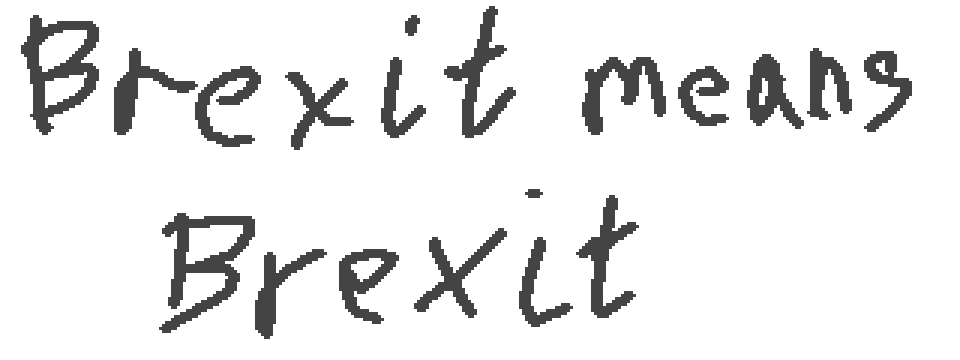 Brexit means
Brexit